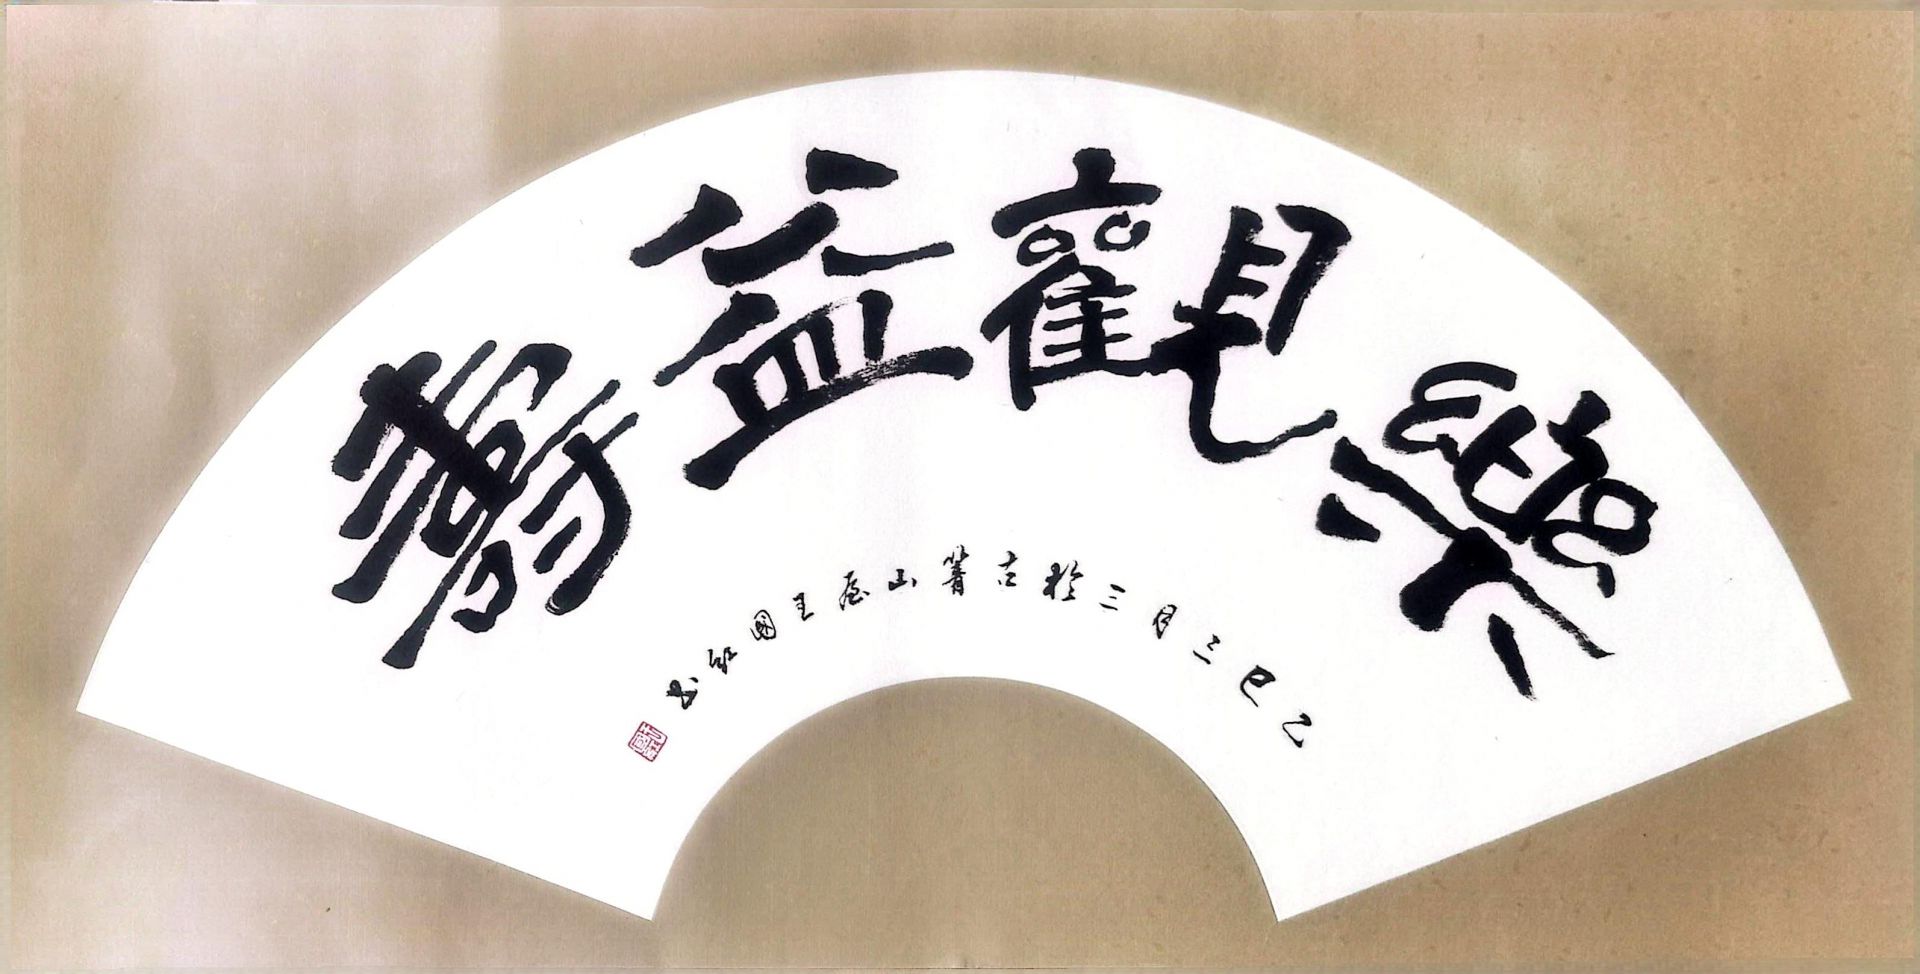 樂觀益壽
乙巳三月三於古箐山房王國紅書